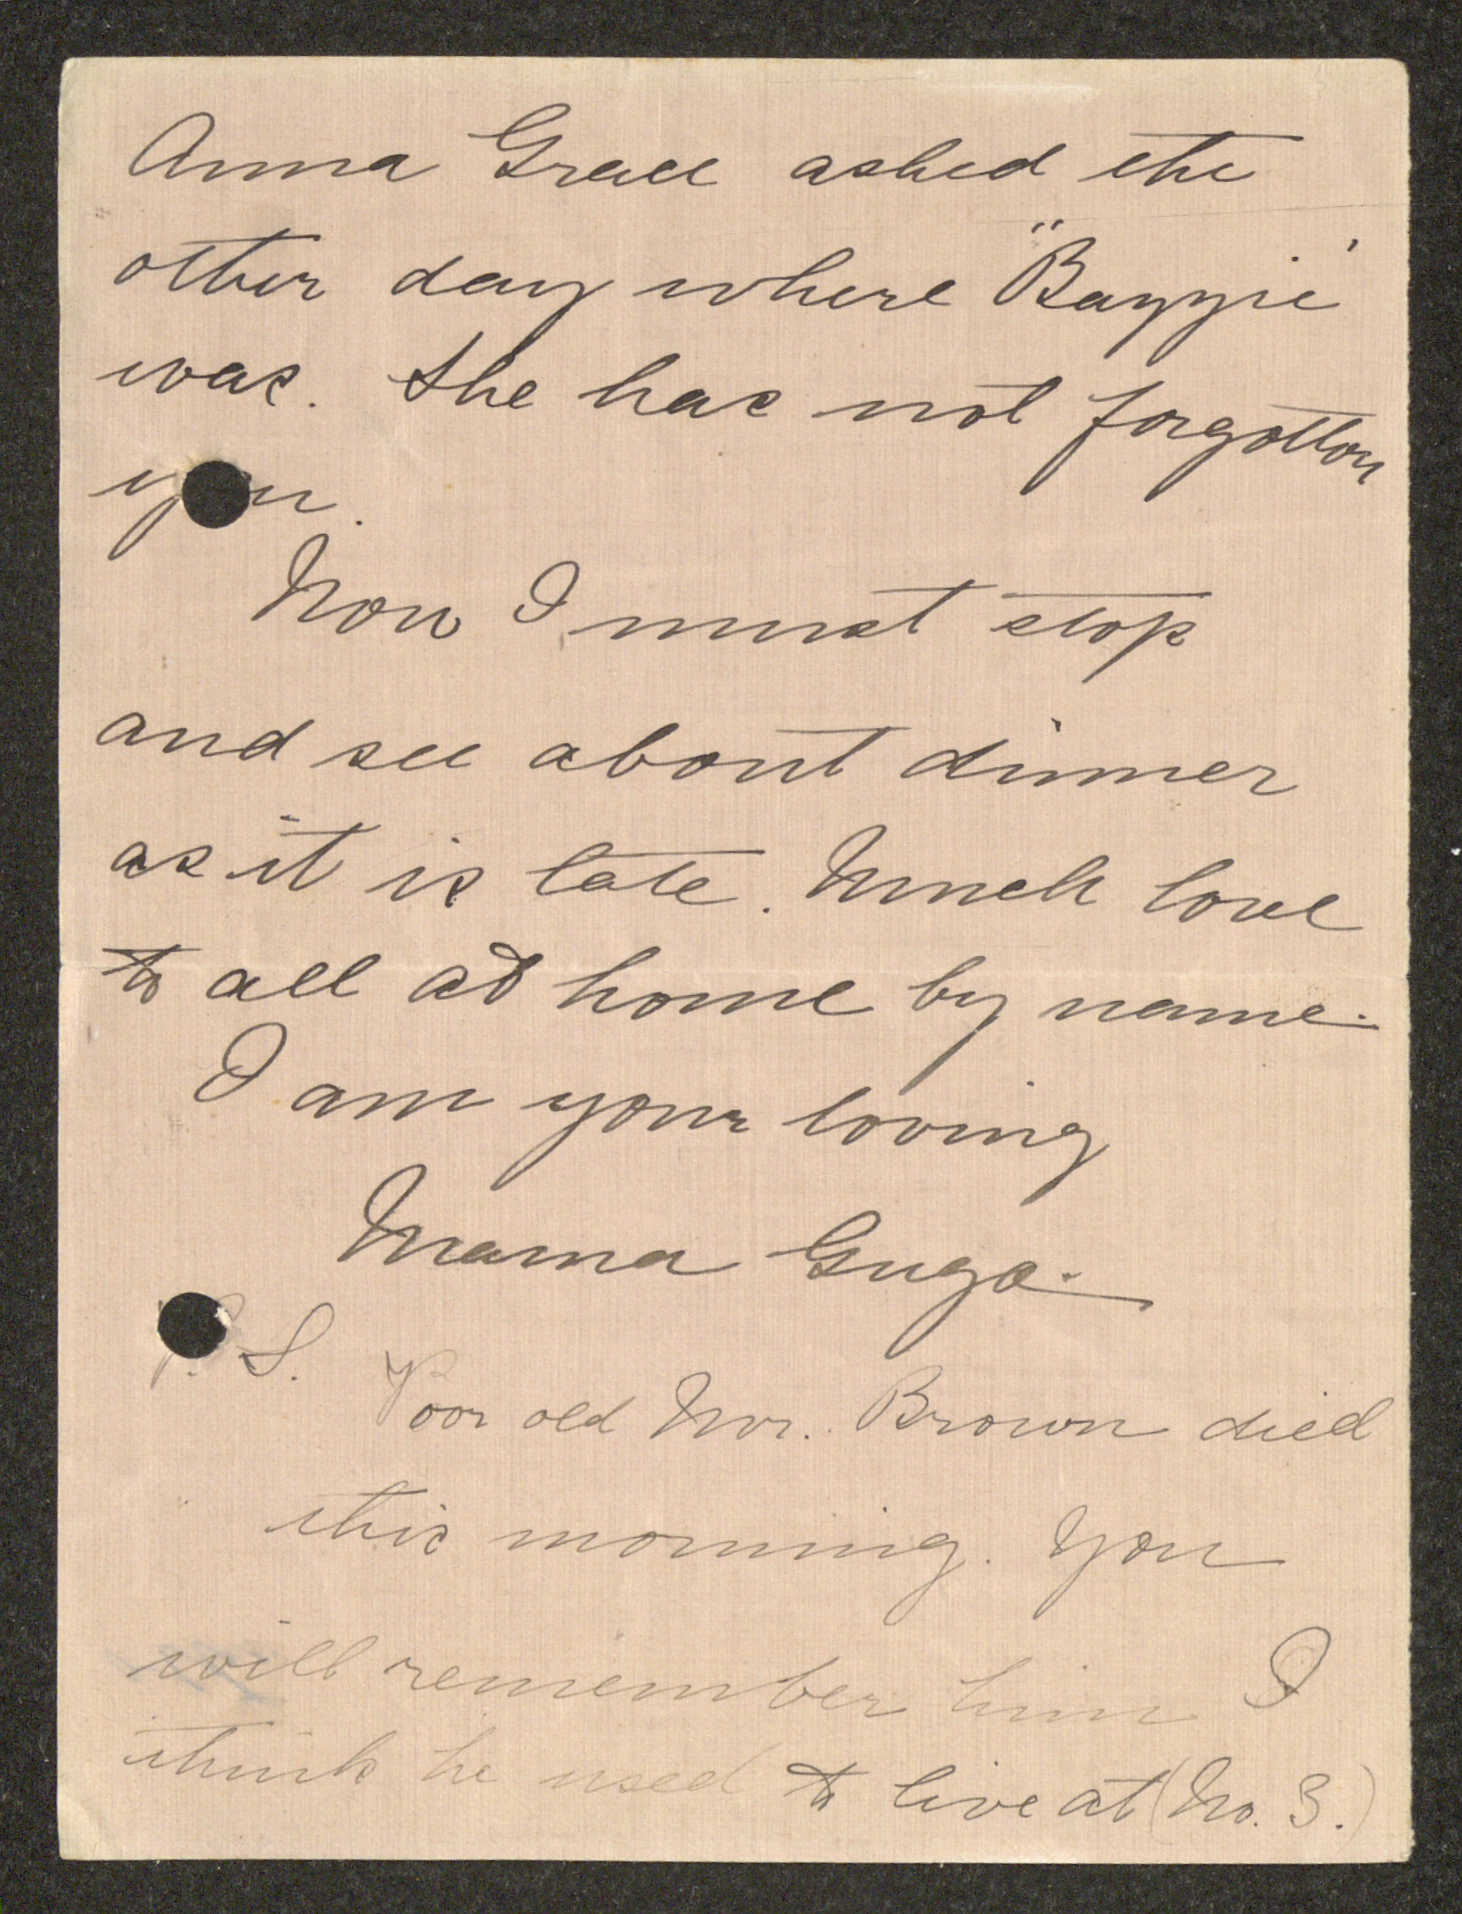 Anna Grace asked the
other day where "Bayyie"
was. She has not forgotton
you.
Now I must stop
and see about dinner
as it is late. Much love
to all at home by name.
I am your loving
Mama Guga.
P.S. Poor old Mr. Brown died
this morning. You
will remember him I
think he used to live at (No. 3.)